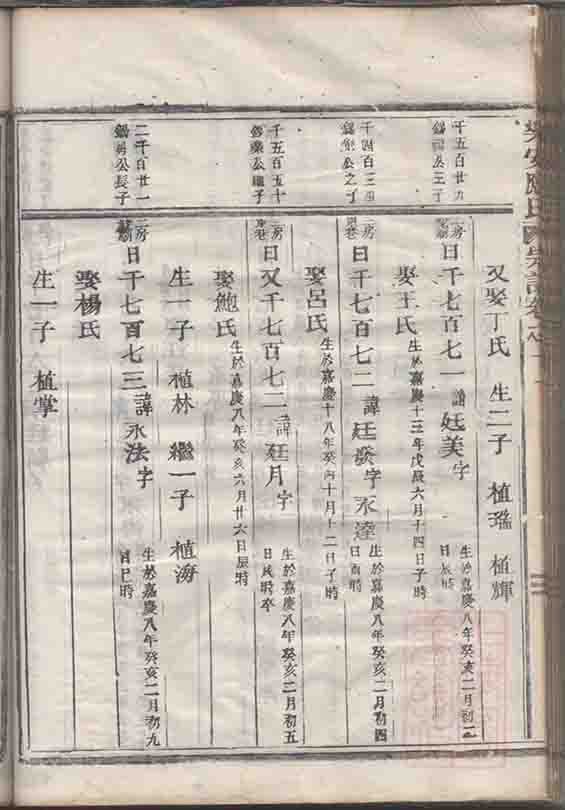 又娶丁氏 生二子 植瑞 植輝
千五百廿九
錫
房
曰千七百七一諱廷美字
生於嘉慶八年癸亥二月初二
日辰時
娶王氏生於嘉慶十三年戊辰六月十四日子時
千四百三
錫
房
曰千七百七二諱廷發字永達
生於嘉慶八年癸亥二月初四
日酉時
娶呂氏生於嘉慶十八年癸酉十月十二日子時
千五百五十
錫榮公繼子
二房
曰又千七百七二諱廷月字
生於嘉慶八年癸亥二月初五
日辰時卒
娶鮑氏生於嘉慶八年癸亥六月廿六日辰時
生一子 植林 繼一子 植海
二千百廿一
錫
公長子
二房
曰千七百七三諱永法字
生於嘉慶八年癸亥二月初九
日巳時
娶楊氏
生一子 植掌